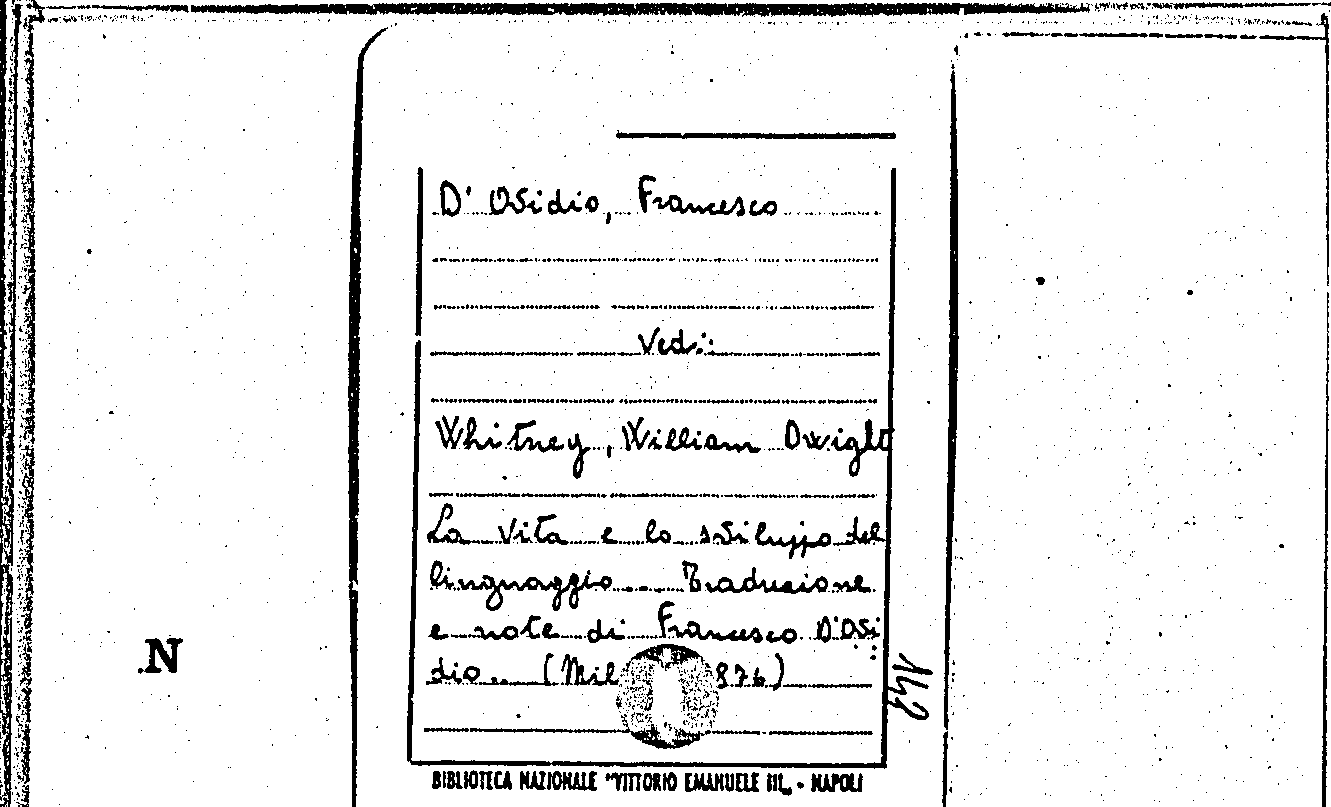 D' Osidio, Francesco
Vedi:
Whitney, William Dwight
La vita e lo sviluppo del
linguaggio... Traduzione
e note di Francesco D'Osi
dio... (Mil 876)
142
.N
BIBLIOTECA NAZIONALE "VITTORIO EMANUELE III„ - NAPOLI